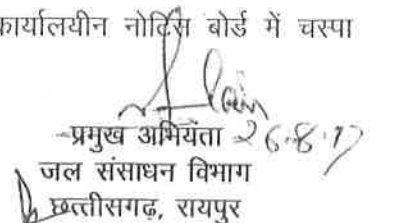 कार्यालयीन नोटिस बोर्ड में चस्पा
प्रमुख अभियंता 26.8.17
जल संसाधन विभाग
छत्तीसगढ़, रायपुर